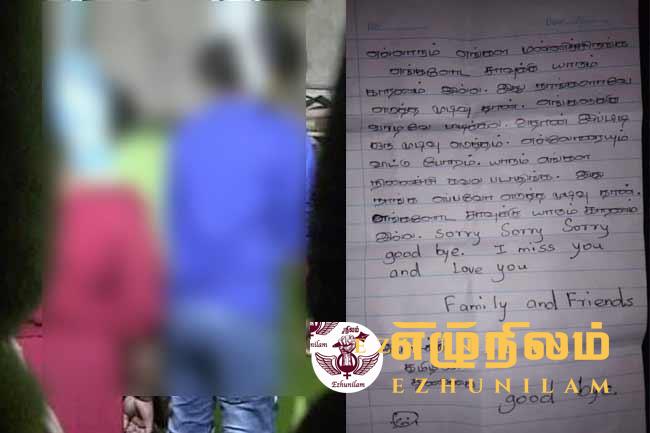 எல்லாரும் எங்கள மன்னிச்சிருங்க
எங்களோட சாவுக்கு யாரும்
காரணம் இல்ல. இது நாங்களாவே
எடுத்த முடிவு தான். எங்களுக்கு
வாழவே புடிக்கல. அதான் இப்படி
ஒரு முடிவு எடுத்தம். எல்லோரையும்
விட்டு போறம். யாரும் எங்கள
நினைச்சி கவல படாதிங்க. இது
நாங்க எப்பவோ எடுத்த முடிவு தான்.
எங்களோட சாவுக்கு யாரும் காரணம்
இல்ல. Sorry Sorry Sorry
good bye. I miss you
and Love you
Family and Friends
எழுநிலம்
Ezhunilam
எழுநிலம்
EZHUNILAM
good bye.